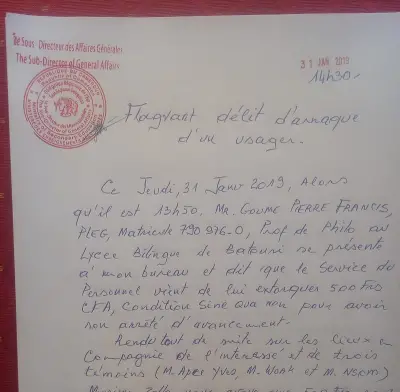 The Sous-Directeur des Affaires Générales
The Sub-Director of General Affairs
31 JAN 2019
14H30-
REPUBLIQUE DU CAMEROUN
Flagrant délit d'arnaque
d'un usager.
Ce Jeudi, 31 Janv 2019, Alors
qu'il est 13h50. Mr. GOUME PIERRE FRANCIS,
PLEG, Matricule 790 976-O, Prof de Philo au
Lycée Bilingue de Batouri se présente
à mon bureau et dit que le Service du
Personnel vient de lui extorquer 500 Frs
CFA, Condition Sine qua non pour avoir
son arrêté d'avancement.
Rendu tout de suite sur les lieux en
Compagnie de l'intéressé et de trois
témoins (M. Apei Yvo, M. Wonk et M. Nsom)